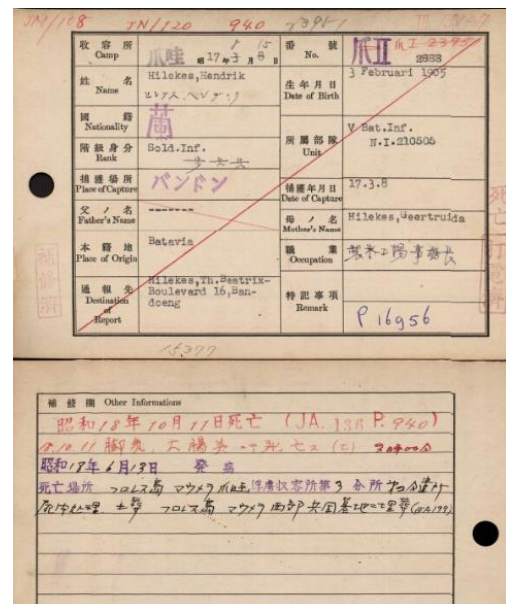 JM/108 JN/120 940
收容所 Camp 爪哇 昭17年8月15日
番號 No. 爪II 爪I 2395 2888
姓名 Name Hilekes,Hendrik
ヒレケス ヘンデリック
生年月日 Date of Birth 3 Februari 1905
國籍 Nationality 蘭
階級身分 Rank Sold.Inf.
所屬部隊 Unit V Bat.Inf.
N.I.210505
捕獲場所 Place of Capture バンドン
捕獲年月日 Date of Capture 17.3.8
父ノ名 Father's Name -------
母ノ名 Mother's Name Hilekes,Geertruida
本籍地 Place of Origin Batavia
職業 Occupation
通報先 Destination of Report Hilekes,Th.Beatrix-
Boulevard 16,Ban-
doeng
特記事項 Remark P 16956
補修濟
死亡
15377
補修欄 Other Informations
昭和18年10月11日死亡 (JA.136 P.940)
18.10.11 脚気,大腸炎
昭和18年6月13日 発病
死亡場所 フロレス島 マウメラ 爪哇俘虜収容所第3分所
死体処理 土葬 フロレス島 マウメラ 西部 共同墓地